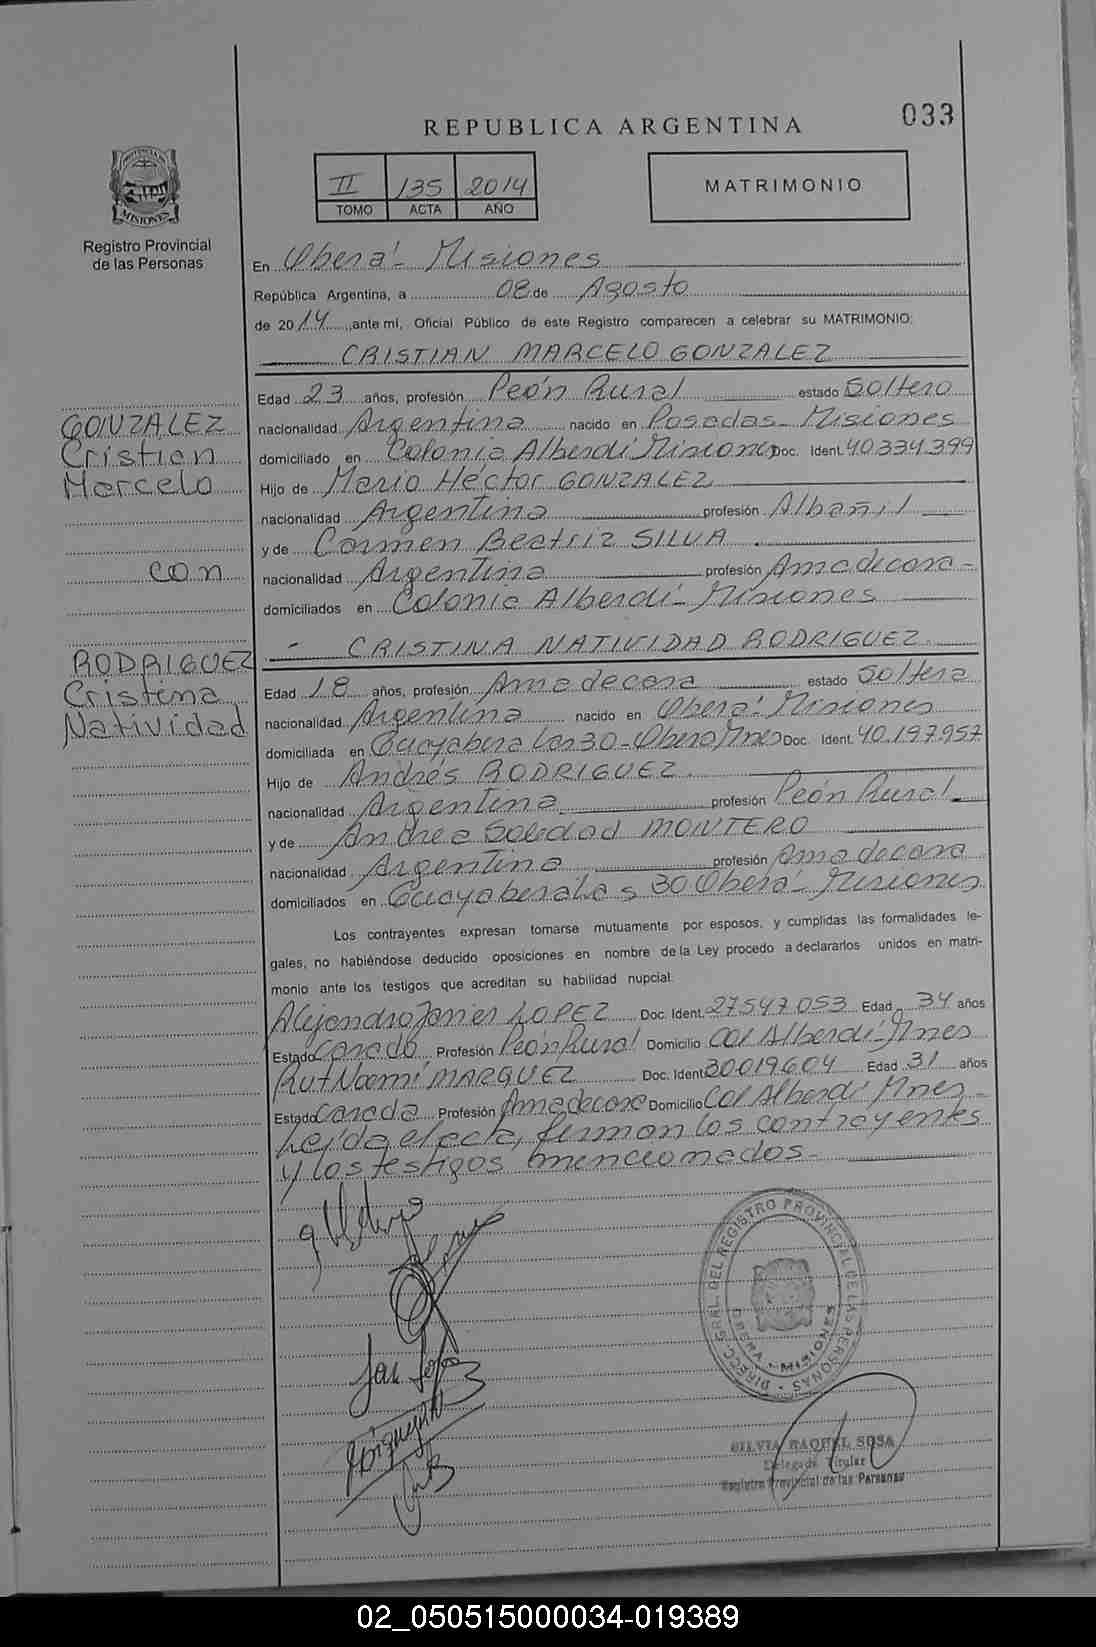 REPUBLICA ARGENTINA
033
II 135 2014
TOMO ACTA AÑO
MATRIMONIO
PROVINCIA DE
MISIONES
Registro Provincial
de las Personas
En Oberá - Misiones
República Argentina, a 08 de Agosto
de 2014, ante mí, Oficial Público de este Registro comparecen a celebrar su MATRIMONIO:
CRISTIAN MARCELO GONZALEZ
GONZALEZ
Cristian
Marcelo
con
RODRIGUEZ
Cristina
Natividad
Edad 23 años, profesión Peón Rural estado Soltero
nacionalidad Argentina nacido en Posadas - Misiones
domiciliado en Colonia Alberdi Misiones Doc. Ident. 40.334.399
Hijo de Mario Héctor GONZALEZ
nacionalidad Argentina profesión Albañil
y de Carmen Beatriz SILVA
nacionalidad Argentina profesión Ama de casa -
domiciliados en Colonia Alberdi - Misiones
- CRISTINA NATIVIDAD RODRIGUEZ.
Edad 18 años, profesión Ama de casa estado Soltera
nacionalidad Argentina nacido en Oberá - Misiones
domiciliada en Guayabera Los 30 - Oberá Mnes Doc. Ident. 40.197.957
Hijo de Andrés RODRIGUEZ.
nacionalidad Argentina profesión Peón Rural
y de Andrea Soledad MONTERO
nacionalidad Argentina profesión Ama de casa
domiciliados en Guayabera Los 30 Oberá - Misiones
Los contrayentes expresan tomarse mutuamente por esposos, y cumplidas las formalidades le-
gales, no habiéndose deducido oposiciones en nombre de la Ley procedo a declararlos unidos en matri-
monio ante los testigos que acreditan su habilidad nupcial:
Alejandro Javier LOPEZ Doc. Ident. 27547053 Edad 34 años
Estado Casado Profesión Peón Rural Domicilio Col Alberdi - Mnes
Rut Noemí MARQUEZ Doc. Ident. 30019604 Edad 31 años
Estado Casada Profesión Ama de casa Domicilio Col Alberdi Mnes -
Leída el acta, firman los contrayentes
y los testigos mencionados -
DIRECC. GRAL. DEL REGISTRO PROVINCIAL DE LAS PERSONAS
OBERA - MISIONES
SILVIA RAQUEL SOSA
Delegada Titular
Registro Provincial de las Personas
02_050515000034-019389